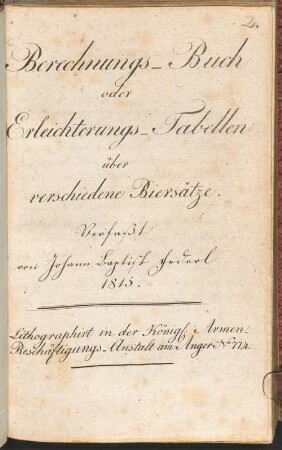 2.
Berechnungs-Buch
oder
Erleichterungs-Tabellen
über
verschiedene Biersätze.
Verfaßt
von Johann Baptist Federl
1815.
Lithographirt in der Königl. Armen-
Beschäftigungs-Anstalt am Anger No 714.